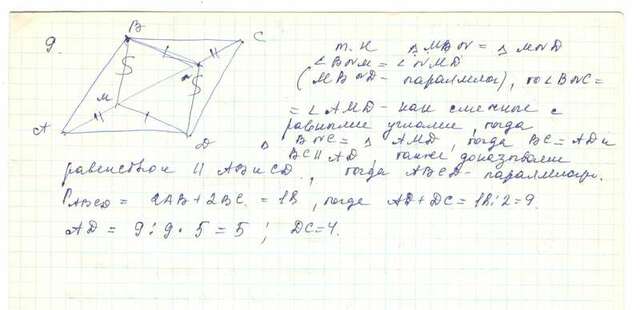 9.
B
C
N
M
A
D
т. к Δ MBN = Δ MND
∠ BNM = ∠ NMD
(MBND - параллелог), то ∠BNC =
= ∠ AMD - как смежные с
равными углами, тогда
Δ BNC = Δ AMD, тогда BC = AD и
BC || AD, также доказываем
равенство и || AB и CD, тогда ABCD - параллелогр.
P ABCD = 2AB + 2BC = 18, тогда AD + DC = 18 : 2 = 9.
AD = 9 : 9 · 5 = 5 ; DC = 4.